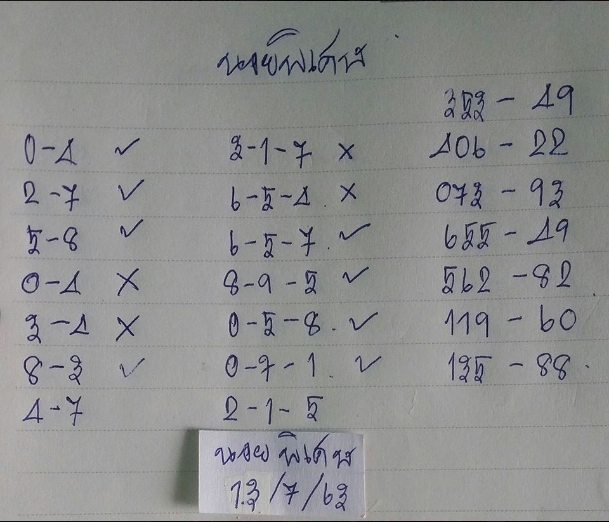 นายพิเศษ
353 - 49
0-4 ✓ 3-1-7 × 406 - 22
2-7 ✓ 6-5-4 × 073 - 93
5-8 ✓ 6-5-7 ✓ 655 - 49
0-4 × 8-9-5 ✓ 562 - 82
3-4 × 0-5-8 ✓ 119 - 60
8-3 ✓ 0-7-1 ✓ 135 - 88
4-7 2-1-5
นายพิเศษ
13/7/63